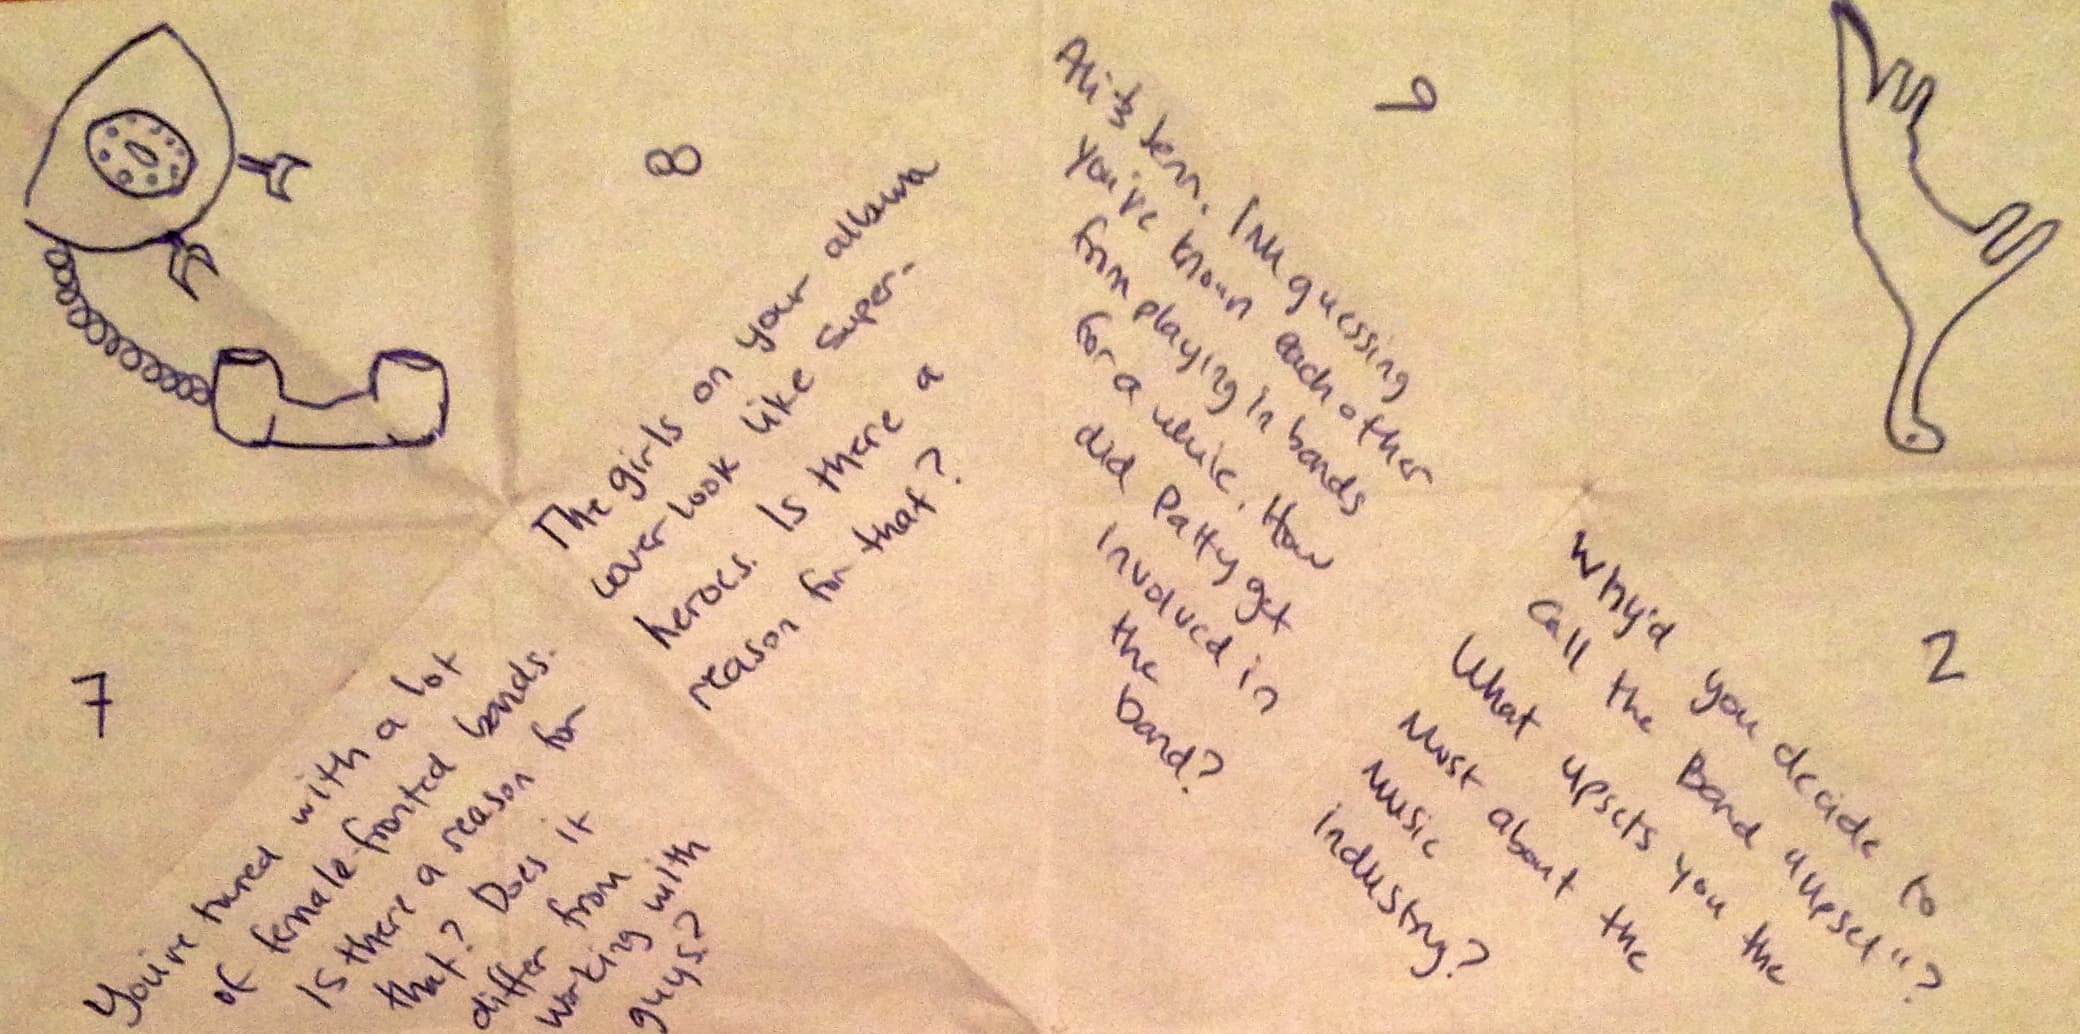 8
The girls on your album
cover look like super-
heroes. Is there a
reason for that?
9
Ali & Jenn. I'm guessing
you've known each other
from playing in bands
for a while. How
did Patty get
involved in
the
band?
7
You've toured with a lot
of female-fronted bands.
Is there a reason for
that? Does it
differ from
working with
guys?
2
Why'd you decide to
call the Band "upset"?
What upsets you the
Most about the
Music
industry?